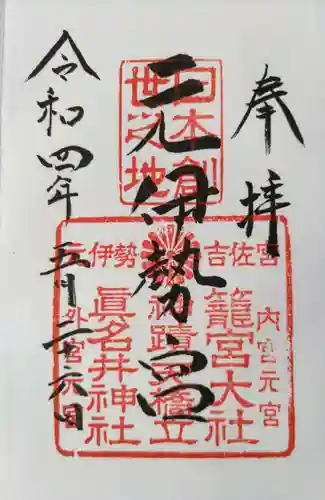 奉拝
日本創
世之地
元伊勢宮
吉佐宮
伊勢
内宮元宮
籠宮大社
神蹟天橋立
眞名井神社
外宮元宮
令和四年五月二十六日